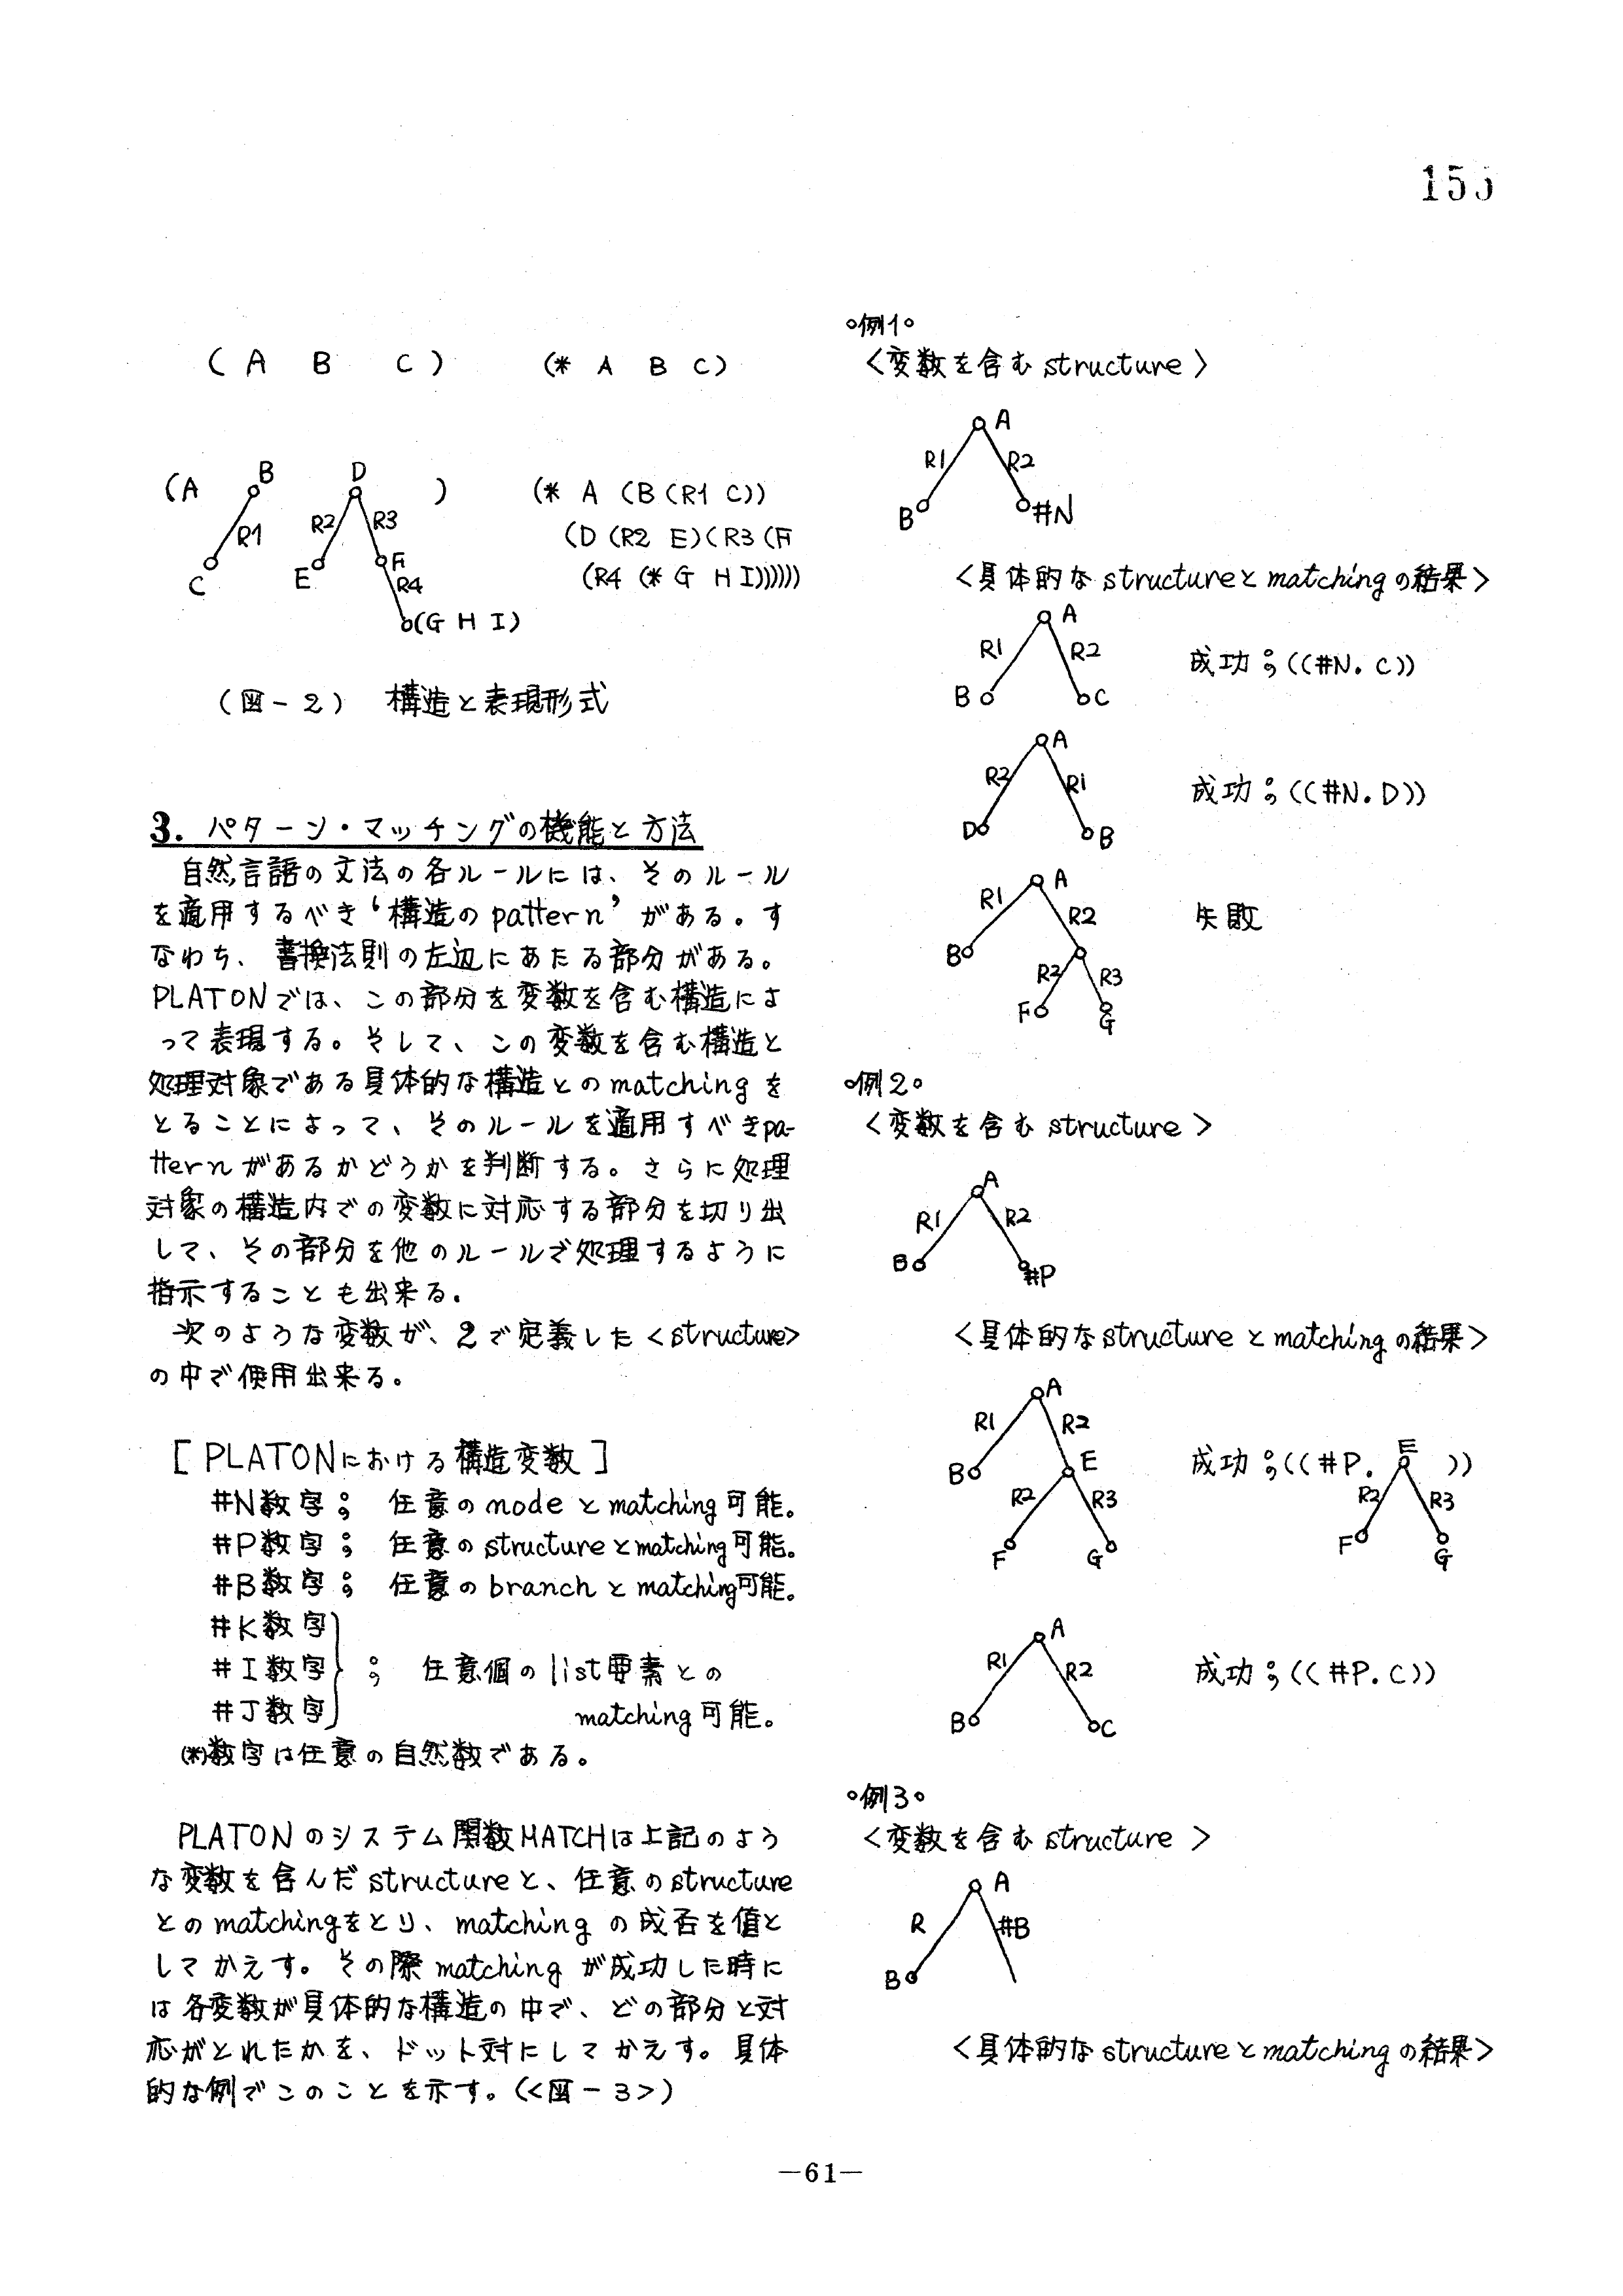 155
( A B C ) (* A B C)
(A B D ) (* A (B (R1 C))
R1 R2 R3 (D (R2 E)(R3 (F
C E F (R4 (* G H I))))))
R4
(G H I)
(図-2) 構造と表現形式
3. パターン・マッチングの機能と方法
自然言語の文法の各ルールには、そのルール
を適用するべき‘構造のpattern’がある。す
なわち、書換法則の左辺にあたる部分がある。
PLATONでは、この部分を変数を含む構造によ
って表現する。そして、この変数を含む構造と
処理対象である具体的な構造とのmatchingを
とることによって、そのルールを適用すべきpa-
tternがあるかどうかを判断する。さらに処理
対象の構造内での変数に対応する部分を切り出
して、その部分を他のルールで処理するように
指示することも出来る.
次のような変数が、2で定義した<structure>
の中で使用出来る。
[PLATONにおける構造変数]
#N数字; 任意のnodeとmatching可能。
#P数字; 任意のstructureとmatching可能。
#B数字; 任意のbranchとmatching可能。
#K数字
#I数字 ; 任意個のlist要素との
#J数字 matching可能。
(*)数字は任意の自然数である。
PLATONのシステム関数MATCHは上記のよう
な変数を含んだstructureと、任意のstructure
とのmatchingをとり、matchingの成否を値と
してかえす。その際matchingが成功した時に
は各変数が具体的な構造の中で、どの部分と対
応がとれたかを、ドット対にしてかえす。具体
的な例でこのことを示す。(<図-3>)
○例1○
<変数を含むstructure>
A
R1 R2
B #N
<具体的なstructureとmatchingの結果>
A
R1 R2 成功;((#N. C))
B C
A
R2 R1 成功;((#N. D))
D B
A
R1 R2 失敗
B
R2 R3
F G
○例2○
<変数を含むstructure>
A
R1 R2
B #P
<具体的なstructureとmatchingの結果>
A
R1 R2
B E 成功;((#P. E ))
R2 R3 R2 R3
F G F G
A
R1 R2 成功;((#P. C))
B C
○例3○
<変数を含むstructure>
A
R #B
B
<具体的なstructureとmatchingの結果>
—61—